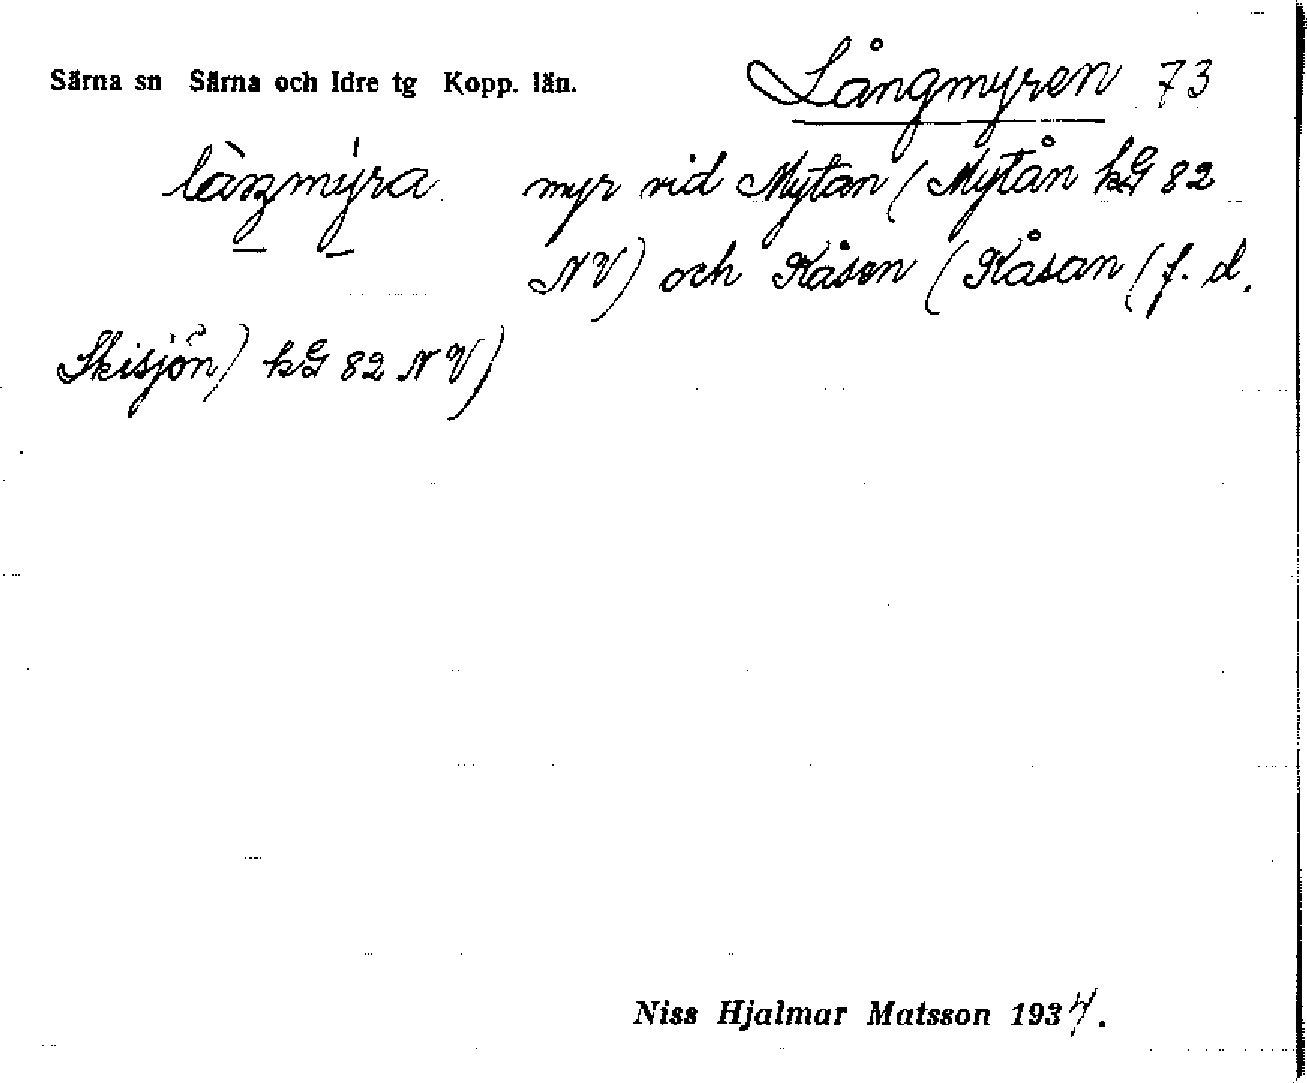 Särna sn Särna och Idre tg Kopp. län. Långmyren 73
làŋmýra myr vid Mytan (Mytån kG 82
NV) och Kåsen (Kåsan (f. d.
Skisjön) kG 82 NV)
Niss Hjalmar Matsson 1934.